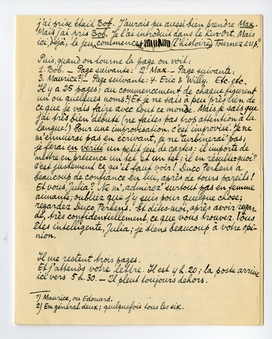 j'ai prise était Bob. J'aurais pu aussi bien prendre Max.
Mais j'ai pris Bob. Je l'ai introduit dans le Kurort. Mais
ici, déjà, le jeu commence (l'histoire). Tournez s.v.p.
Puis, quand on tourne la page on voit:
1. Bob. – Page suivante: 2) Max. – Page suivante:
3. Maurice. – Page suivante: 4. Eric & Willy. Etc. etc.
Il y a 25 pages: au commencement de chaque figurent
un ou quelques noms. Et je ne sais à peu près rien de
ce que je vais faire avec tous ce monde. Mais je sais que j'ai
très bien débuté (ne faites pas trop attention à la
langue)! Pour une improvisation, c'est improvisé. Je ne
m'ennuierai pas en écrivant, je ne turbinerai pas,
je ferai en vérité un petit jeu de cartes: il importe de
mettre en présence un tel et un tel: il en résulte quoi?
c'est justement ce qu'il faut voir! Duco Perkens a
beaucoup de confiance en lui, après de tours pareils!
Et vous, Julia? Ne m'admirez surtout pas en femme
aimante; oubliez que j'y sues pour quelque chose;
regardez Duco Perkens. Et dites-moi, après avoir regar-
dé, très confidentiellement, ce que vous trouvez. Vous
êtes intelligente, Julia; je tiens beaucoup à votre opi-
nion.
Il me restent trois pages.
Et j'attends votre lettre. Il est 4 h. 20; la poste arrive
ici vers 5 h. 30. – Il pleut toujours dehors.
1) Maurice, ou Edouard.
2) En général deux; quelquefois tous les six.